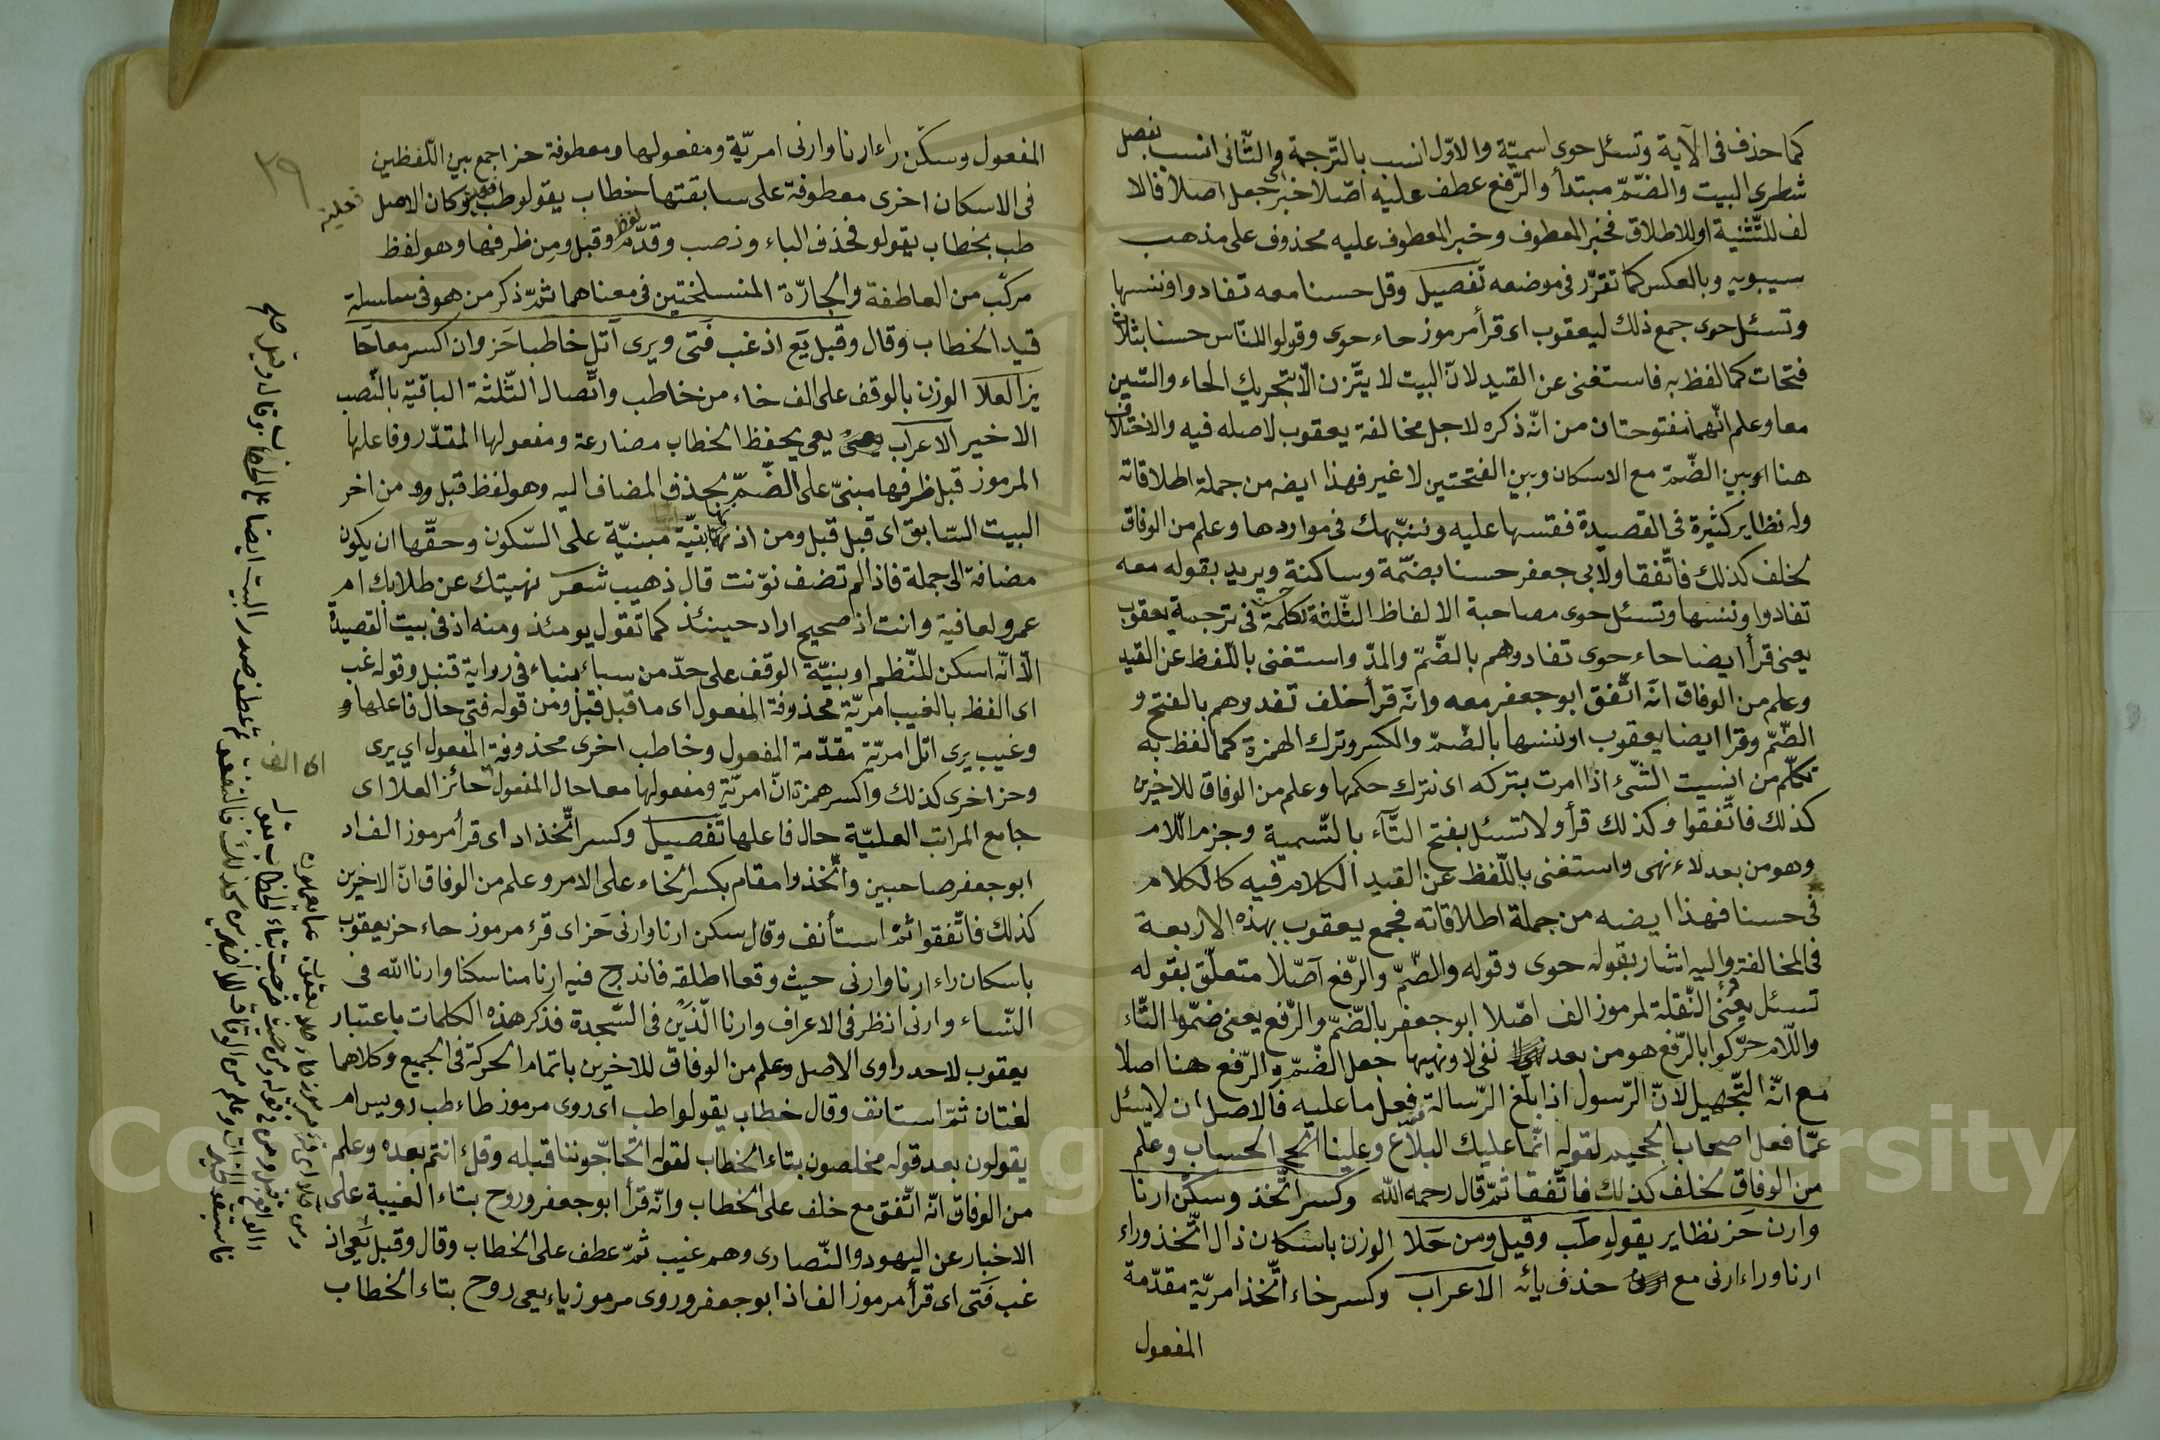 كما حذف فى الآية وتسئل حوى اسميّة والاوّل انسب بالتّرجمة والثّانى انسب بفصل
شطرى البيت والضّمّ مبتدأ والرّفع عطف عليه اصّلا خبر جعل اصلا فالا
لف للتّثنية او للاطلاق فخبر المعطوف وخبر المعطوف عليه محذوف على مذهب
سيبويه وبالعكس كما تقرّر فى موضعه تفصيل وقل حسنا معه تفادوا وننسها
وتسئل حوى جمع ذلك ليعقوب اى قرأ مرموز حاء حوى وقولوا للنّاس حسنا بثلاث
فتحات كما لفظ به فاستغنى عن القيد لانّ البيت لا يتّزن الّا بتحريك الحاء والسّين
معا وعلم انّهما مفتوحتان من انّه ذكره لاجل مخالفة يعقوب لاصله فيه والاختلاف
هنا بين الضّمّ مع الاسكان وبين الفتحتين لا غير فهذا ايضه من جملة اطلاقاته
وله نظاير كثيرة فى القصيدة فقسها عليه وننبّهك فى مواردها وعلم من الوفاق
لخلف كذلك فاتّفقا ولابى جعفر حسنا بضمّة وساكنة ويريد بقوله معه
تفادوا وننسها وتسئل حوى مصاحبة الالفاظ الثّلثة لكلمة حسنا فى ترجمة يعقوب
يعنى قرأ ايضا حاء حوى تفادوهم بالضّمّ والمدّ واستغنى باللّفظ عن القيد
وعلم من الوفاق انّه اتّفق ابو جعفر معه وانّه قرأ خلف تفدوهم بالفتح و
الضّمّ وقرا ايضا يعقوب او ننسها بالضّمّ والكسر وترك الهمزة كما لفظ به
تكلّم من انسيت الشّئ اذا امرت بتركه اى نترك حكمها وعلم من الوفاق للاخيرين
كذلك فاتّفقوا وكذلك قرأ ولا تسئل بفتح التّآء بالتّسمية وجزم اللّام
وهو من بعد لاء نهى واستغنى باللّفظ عن القيد الكلام فيه كالكلام
فى حسنا فهذا ايضه من جملة اطلاقاته فجمع يعقوب بهذه الاربعة
فى المخالفة واليه اشار بقوله حوى وقوله والضّمّ والرّفع آصّلا متعلّق بقوله
تسئل يعنى النّقلة لمرموز الف اصّلا ابو جعفر بالضّمّ والرّفع يعنى ضمّوا التّاء
واللّام حرّكوا بالرّفع هو من بعد نفى لا ونهيها جعل الضّمّ والرّفع هنا اصلا
مع انّه التّجهيل لانّ الرّسول اذا بلّغ الرّسالة فعل ما عليه فالاصل ان لا يسئل
عمّا فعل اصحاب الجحيم لقوله انّما عليك البلاغ وعلينا الحساب وعلم
من الوفاق لخلف كذلك فاتّفقا ثمّ قال رحمه الله وكسر اتّخذ وسكّن ارنا
وارن حَز نظاير يقولو طَب وقيل ومن حَلا الوزن باسكان ذال اتّخذ وراء
ارنا وراء ارنى مع حذف يائه الاعراب وكسر خاء اتّخذ امريّة مقدّمة
المفعول
المفعول وسكّن راء ارنا وارنى امريّة ومفعولها ومعطوفة حز اجمع بين اللّفظين
فى الاسكان اخرى معطوفة على سابقتها خطاب يقولو طب فعلية وكان الاصل
طب بخطاب يقولو فحذف الباء ونصب وقدّم لفظ وقبل ومن ظرفها وهو لفظ
مركّب من العاطفة والجارّة المنسلختين فى معناهما ثمّ ذكر من هو فى سلسلة
قيد الخطاب وقال وقبل يَع اذ غب فَتى ويرى آتل خاطبا حَز وان اكسر معا حَا
يز العلا الوزن بالوقف على الف خاء من خاطب واتّصال الثّلثة الباقية بالنّصب
الاخير الاعراب يعى يحفظ الخطاب مضارعة ومفعولها المقدّر وفاعلها
المرموز قبل ظرفها مبنىّ على الضّمّ بحذف المضاف اليه وهو لفظ قبل ومن اخر
البيت السّابق اى قبل قبل ومن اذ مبنيّة على السّكون وحقّها ان يكون
مضافة الى جملة فاذا لم تضف نوّنت قال ذهيب شعر نهيتك عن طلابك ام
عمرو لعافية وانت اذ صحيح اراد حينئذ كما تقول يومئذ ومنه اذ فى بيت القصيدة
الّا انّه اسكن للنّظم او بنيّة الوقف على حدّ من سبأ بنباء فى رواية قنبل وقوله غب
اى الفظ بالغيب امريّة محذوفة المفعول اى ما قبل قبل ومن قوله فتى حال فاعلها و
وغيب يرى اتل امريّة مقدّمة المفعول وخاطب اخرى محذوفة المفعول اى يرى
وحز اخرى كذلك واكسر همزة انّ امريّة ومفعولها معا حال المفعول حائز العلا اى
جامع المراتب العليّة حال فاعلها تفصيل وكسر اتّخذ اد اى قرأ مرموز الف اد
ابو جعفر صاحبين واتّخذوا مقام بكسر الخاء على الامر وعلم من الوفاق انّ الاخيرين
كذلك فاتّفقوا ثمّ استأنف وقال سكن ارنا وارنى حَز اى قرء مرموز حاء حز يعقوب
باسكان راء ارنا وارنى حيث وقعا اطلقه فاندرج فيه ارنا مناسكنا وارنا الله فى
النّساء وارنى انظر فى الاعراف وارنا الّذين فى السّجدة فذكر هذه الكلمات باعتبار
يعقوب لاحد راوى الاصل وعلم من الوفاق للاخيرين باتمام الحركة فى الجميع وكلاهما
لغتان ثمّ استانف وقال خطاب يقولوا طب اى روى مرموز طاء طب رويس ام
يقولون بعد قوله مخلصون بتاء الخطاب لقوله اتحاجّوننا قبله وقل ءانتم بعده وعلم
من الوفاق انّه اتّفق مع خلف على الخطاب وانّه قرأ ابو جعفر وروح بتاء الغيبة على
الاخبار عن اليهود والنّصارى وهم غيب ثمّ عطف على الخطاب وقال وقبل يَعى اذ
غب فَتى اى قرأ مرموز الف اذ ابو جعفر وروى مرموز ياء يعى روح بتاء الخطاب
٢٩
اى الف